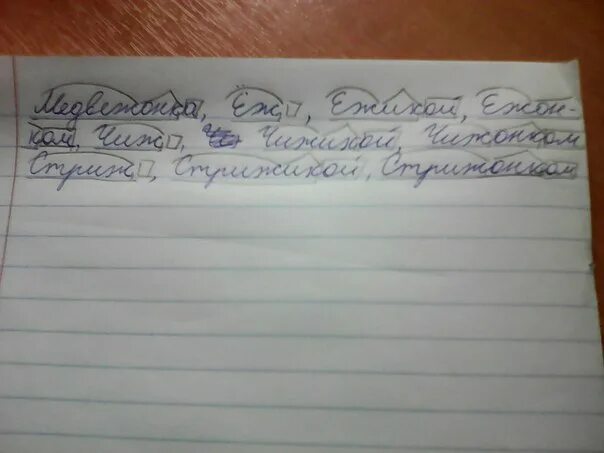 Медвежонка, Ёж, Ежикой, Ежон-
ком, Чиж, Чижикой, Чижонком
Стриж, Стрижикой, Стрижонком